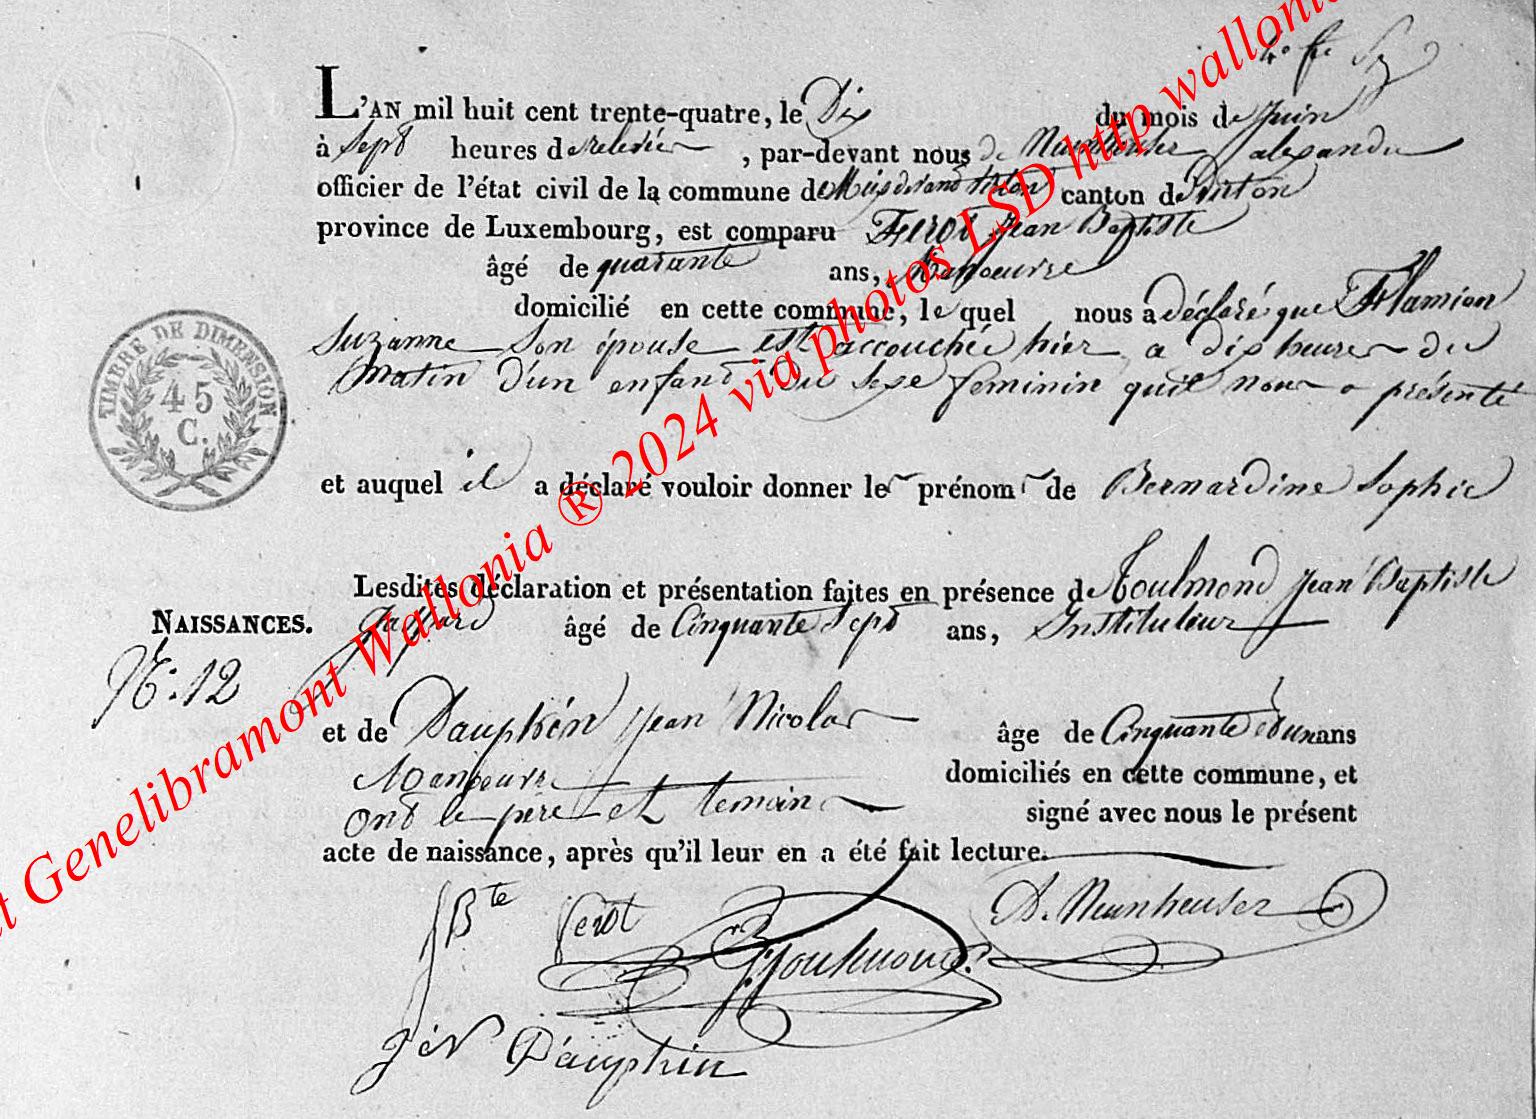 4e fe
L'AN mil huit cent trente-quatre, le Dix du mois de juin
à Sept heures de relevée, par-devant nous de Neunheuser alexandre
officier de l'état civil de la commune de Meix devant Virton canton de Virton
province de Luxembourg, est comparu Ferot Jean Baptiste
âgé de quarante ans, Manoeuvre
domicilié en cette commune, le quel nous a déclaré que Flamion
Suzanne Son épouse est accouchée hier a dix heures du
Matin d'un enfant du sexe feminin quil nous a présenté
et auquel il a déclaré vouloir donner les prénoms de Bernardine Sophie
Lesdites déclaration et présentation faites en présence de Toulmond Jean Baptiste
NAISSANCES. Gaspard âgé de Cinquante Sept ans, Instituteur
N.° 12
et de Dauphin Jean Nicolas âge de Cinquante et un ans
Manoeuvre domiciliés en cette commune, et
ont le père et temoins signé avec nous le présent
acte de naissance, après qu'il leur en a été fait lecture.
J Bte ferot Toulmond A. Neunheuser
J n Dauphin
TIMBRE DE DIMENSION
45
C.
t Genelibramont Wallonia ® 2024 via photos LSD http wallonia